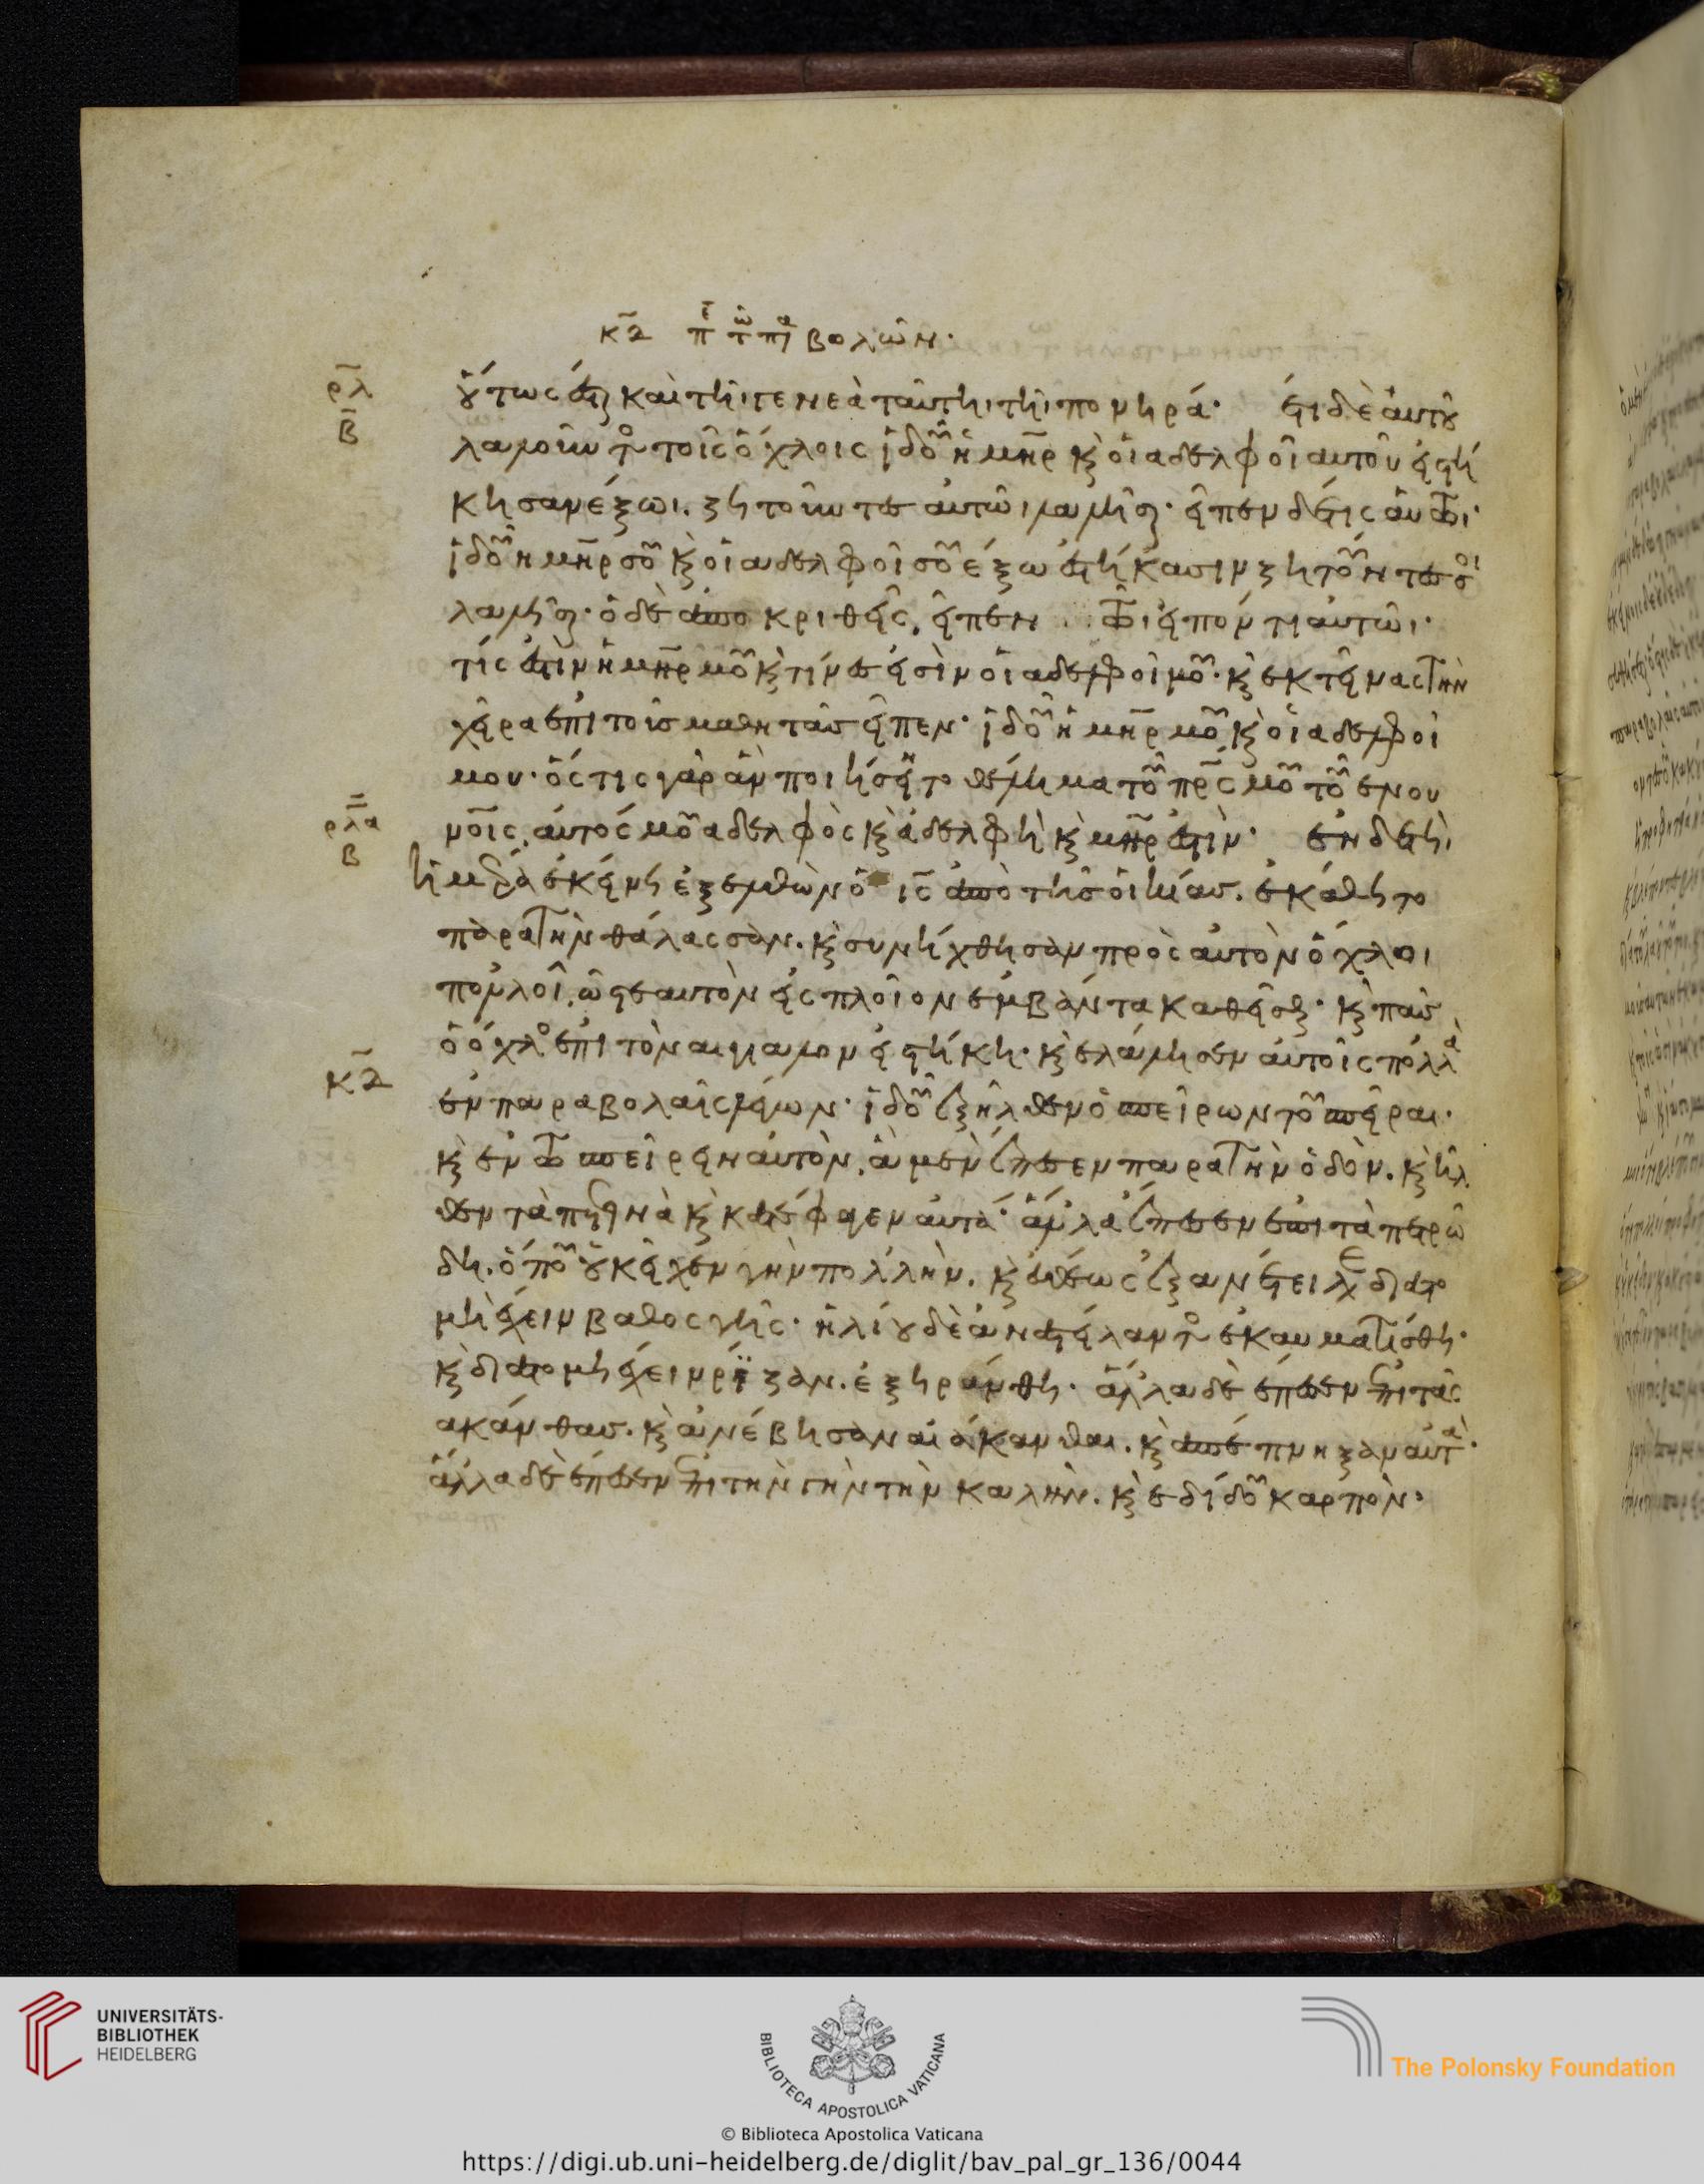 κδ π τ πα βολῶν·
ρλ
β
οὕτως ἔσται καὶ τῆι γενεὰ ταύτηι τῆι πονηρά· ἔτι δὲ αὐτοῦ
λαλοῦντος τοῖς ὄχλοις ἰδοῦ ἡ μηρ κ οἱ ἀδελφοὶ αυτοῦ εἱστή
κησαν ἔξωι. ζητοῦντες αὐτῶι λαλῆσαι· εἶπεν δέ τις αὐτῶι·
ἰδοῦ ἡ μηρ σοῦ κ οἱ αδελφοὶ σοῦ ἔξω ἑστήκασιν ζητοῦντες σοι
λαλῆσαι· ὁ δὲ ἀποκριθεὶς, εἶπεν τῶι εἰπόντι αὐτῶι·
τίς ἐστὶν ἡ μηρ μοῦ κ τίνες εἰσὶν οἱ αδελφοὶ μοῦ· κ εκτείνας τὴν
χεῖρα επὶ τοὺς μαθητὰς εἶπεν· ἰδοῦ ἡ μηρ μοῦ κ οἱ αδελφοὶ
μου· ὅς τις γὰρ ἂν ποιήσῃ το θέλημα τοῦ πρς μοῦ τοῦ εν ου
ρλα
β
νοῖς, αὐτός μοῦ αδελφὸς κ ἀδελφὴ κ μηρ ἐστὶν· εν δὲ τῆι
ἡμέρα ἐκείνη ἐξελθὼν ὁ ις ἀπὸ τῆς οἰκίας. ἐκάθητο
παρα τὴν θάλασσαν. κ συνήχθησαν πρὸς αὐτὸν ὄχλοι
πολλοὶ, ὥστε αυτὸν εἰς πλοῖον ἐμβάντα καθεῖσθαι· κ πᾶς
ὁ όχλος ἐπὶ τὸν αιγιαλον εἱστήκη· κ ελάλησεν αὐτοῖς πολλὰ
κδ
ἐν παραβολαῖς λέγων· ἰδοῦ ἐξῆλθεν ὁ σπείρων τοῦ σπεῖραι·
κ ἐν τῶ σπείρειν αὐτὸν, ἃ μὲν ἔπεσεν παρα τὴν ὁδὸν. κ ἦλ
θεν τὰ πετεινὰ κ κατέφαγεν αὐτά· ἄλλα ἔπεσεν ἐπὶ τὰ πετρώ
δη. ὅπου οὐκ εἶχεν γὴν πολλὴν. κ εὐθέως ἐξανέτειλε δια το
μὴ ἔχειν βαθος γῆς· ἡλίου δὲ ἀνατείλαντος ἐκαυματίσθη·
κ δια το μὴ ἔχειν ρίζαν. ἐξηράνθη· ἄλλα δὲ ἔπεσεν ἐπὶ τὰς
ακάνθας. κ ἀνέβησαν αἱ άκανθαι. κ ἀπέπνηξαν αὐτὰ·
ἄλλα δὲ ἔπεσεν ἐπὶ τὴν γὴν τὴν καλὴν. κ εδίδου καρπὸν·
UNIVERSITÄTS-
BIBLIOTHEK
HEIDELBERG
BIBLIOTECA APOSTOLICA VATICANA
The Polonsky Foundation
© Biblioteca Apostolica Vaticana
https://digi.ub.uni-heidelberg.de/diglit/bav_pal_gr_136/0044